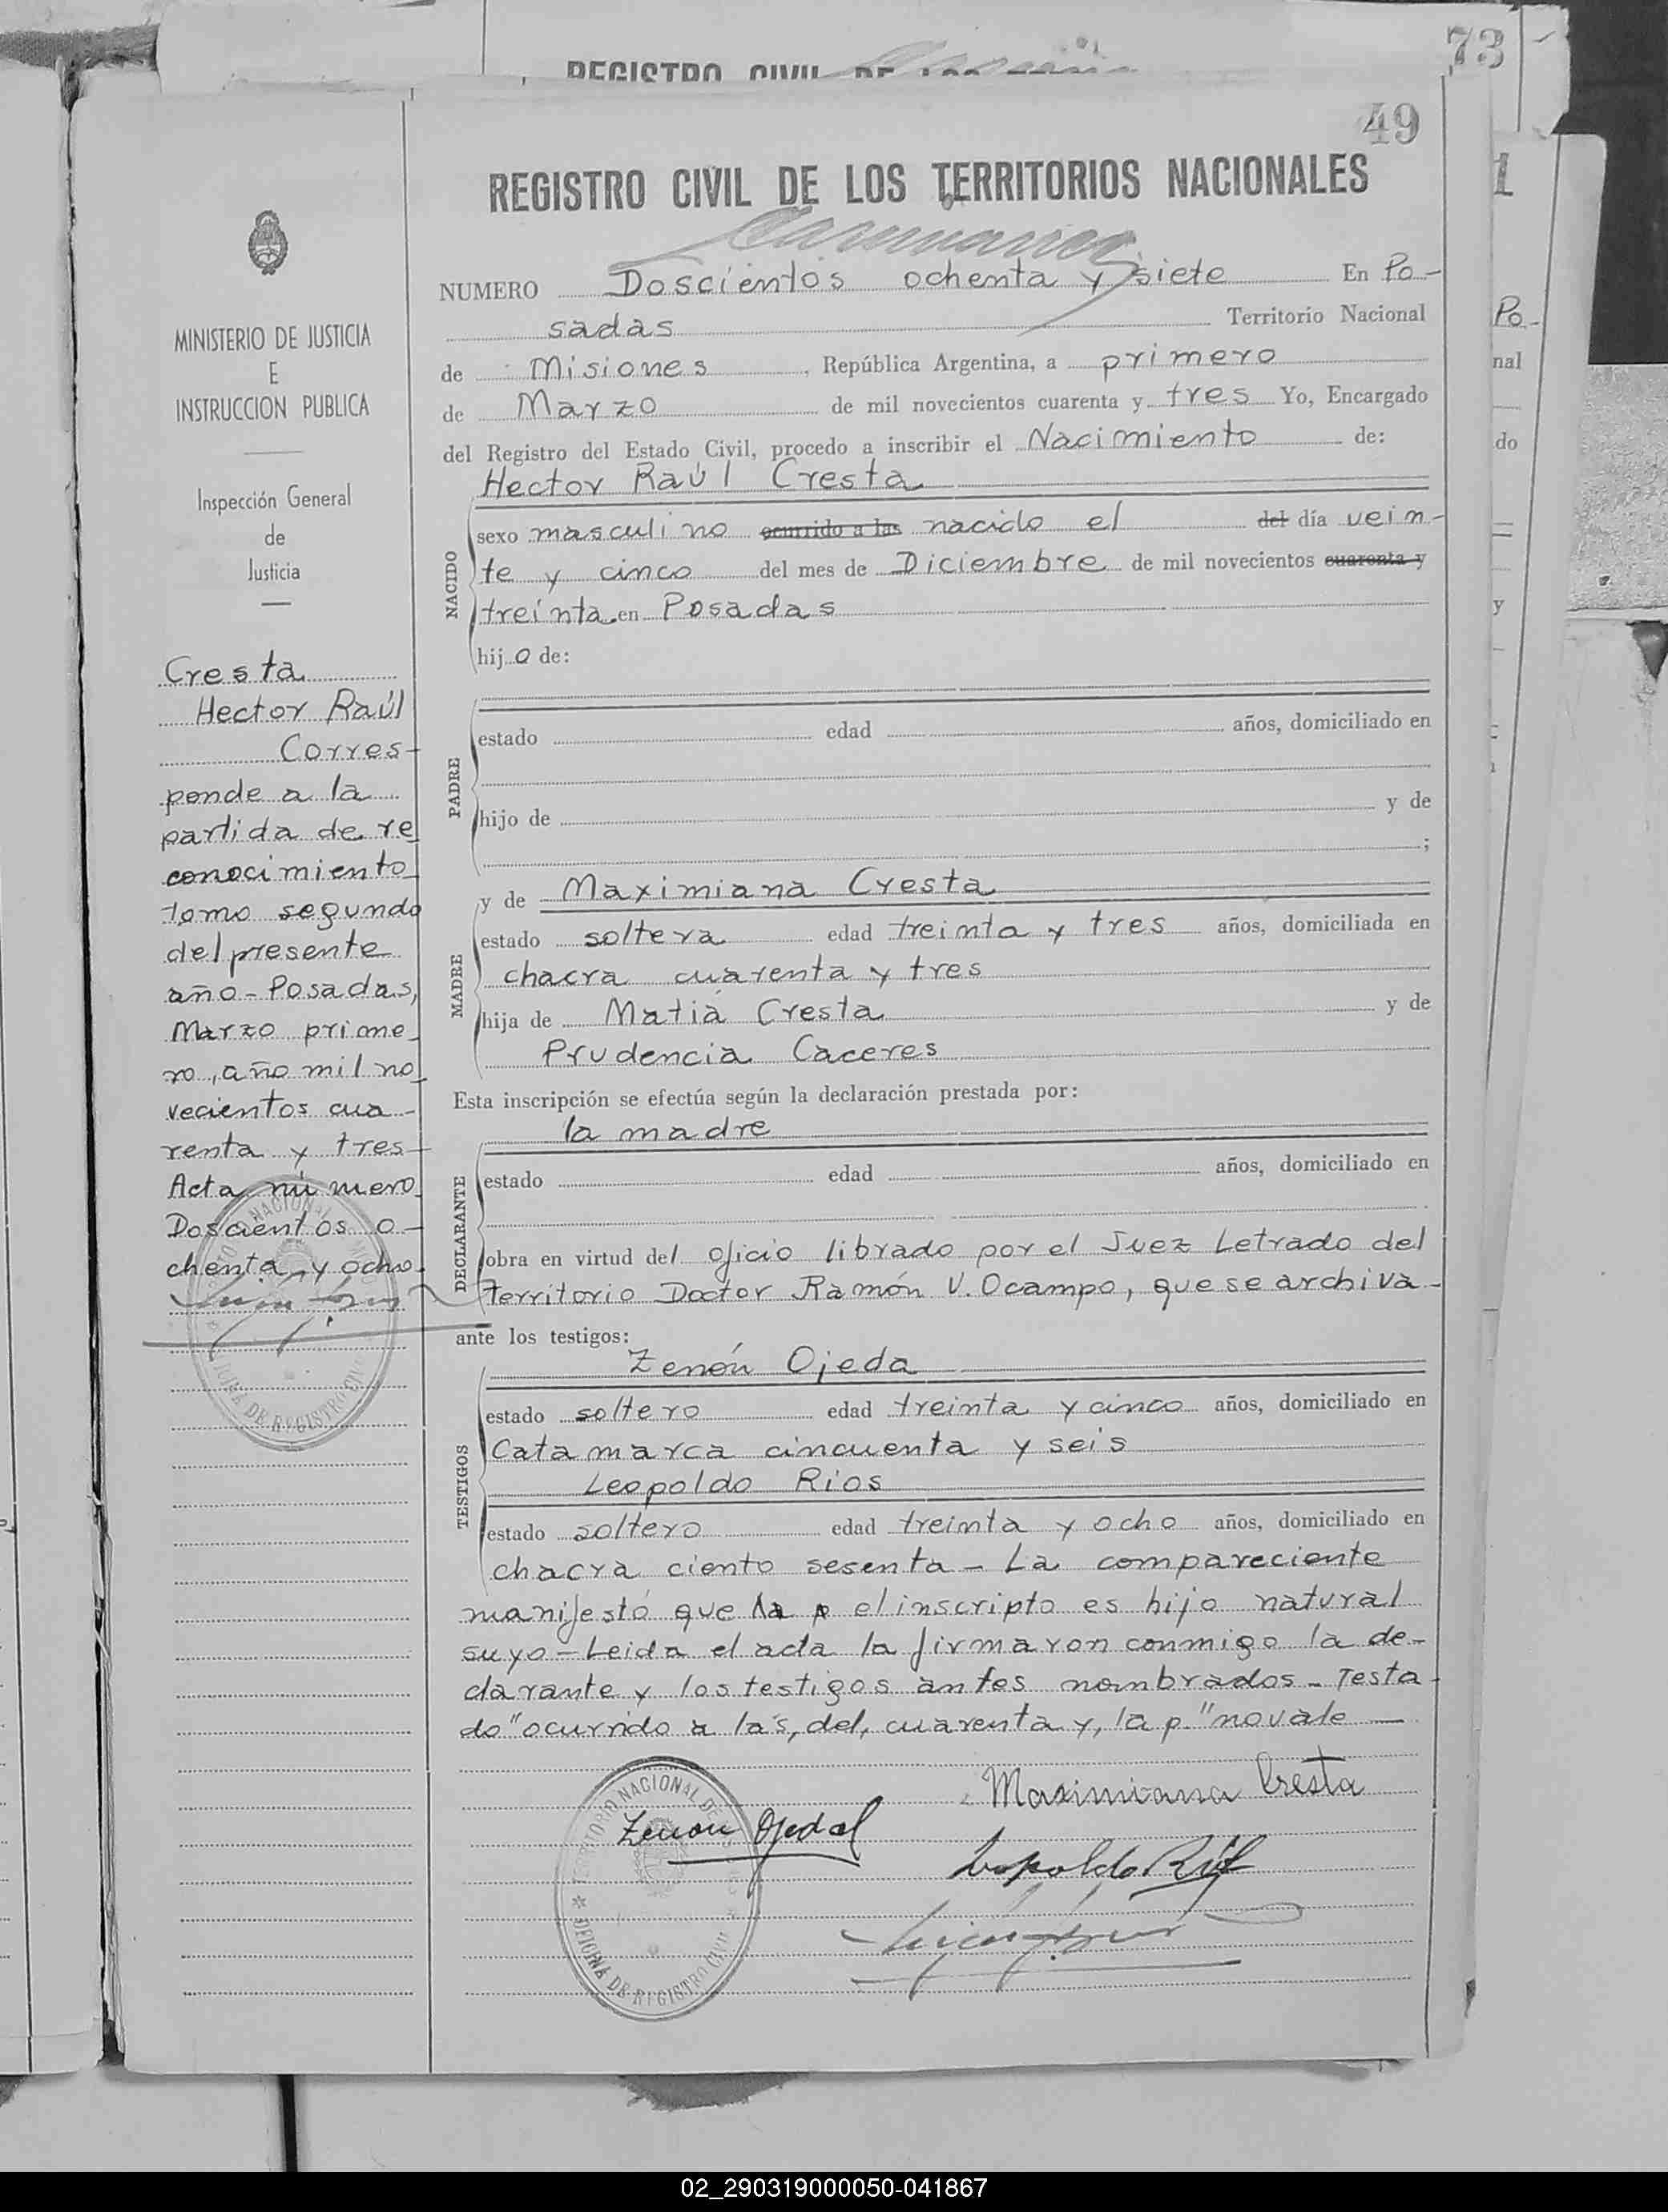 73
49
REGISTRO CIVIL DE LOS TERRITORIOS NACIONALES
NUMERO Doscientos ochenta y siete En Po-
sadas Territorio Nacional
de Misiones, República Argentina, a primero
de Marzo de mil novecientos cuarenta y tres Yo, Encargado
del Registro del Estado Civil, procedo a inscribir el Nacimiento de:
Hector Raúl Cresta
NACIDO
sexo masculino ocurrido a las nacido el del día vein-
te y cinco del mes de Diciembre de mil novecientos cuarenta y
treinta en Posadas
hijo de:
PADRE
estado edad años, domiciliado en
hijo de y de
;
MADRE
y de Maximiana Cresta
estado soltera edad treinta y tres años, domiciliada en
chacra cuarenta y tres
hija de Matia Cresta y de
Prudencia Caceres
Esta inscripción se efectúa según la declaración prestada por:
la madre
DECLARANTE
estado edad años, domiciliado en
obra en virtud del oficio librado por el Juez Letrado del
Territorio Doctor Ramón V. Ocampo, que se archiva-
ante los testigos:
Zenón Ojeda
TESTIGOS
estado soltero edad treinta y cinco años, domiciliado en
Catamarca cincuenta y seis
Leopoldo Rios
estado soltero edad treinta y ocho años, domiciliado en
chacra ciento sesenta - La compareciente
manifestó que la p el inscripto es hijo natural
suyo - Leida el acta la firmaron conmigo la de-
clarante y los testigos antes nombrados - Testa-
do "ocurrido a las, del, cuarenta y, la p." no vale -
Maximiana Cresta
Zenon Ojeda
Leopoldo Rios
TERRITORIO NACIONAL DE
OFICINA DE REGISTRO CIVIL
MINISTERIO DE JUSTICIA
E
INSTRUCCION PUBLICA
Inspección General
de
Justicia
Cresta
Hector Raúl
Corres-
ponde a la
partida de re
conocimiento
tomo segundo
del presente
año - Posadas,
Marzo prime
ro, año mil no
vecientos cua-
renta y tres-
Acta número
Doscientos o-
chenta y ocho
NACIONAL
OFICINA DE REGISTRO CIVIL
1
Po-
nal
do
y
02_290319000050-041867